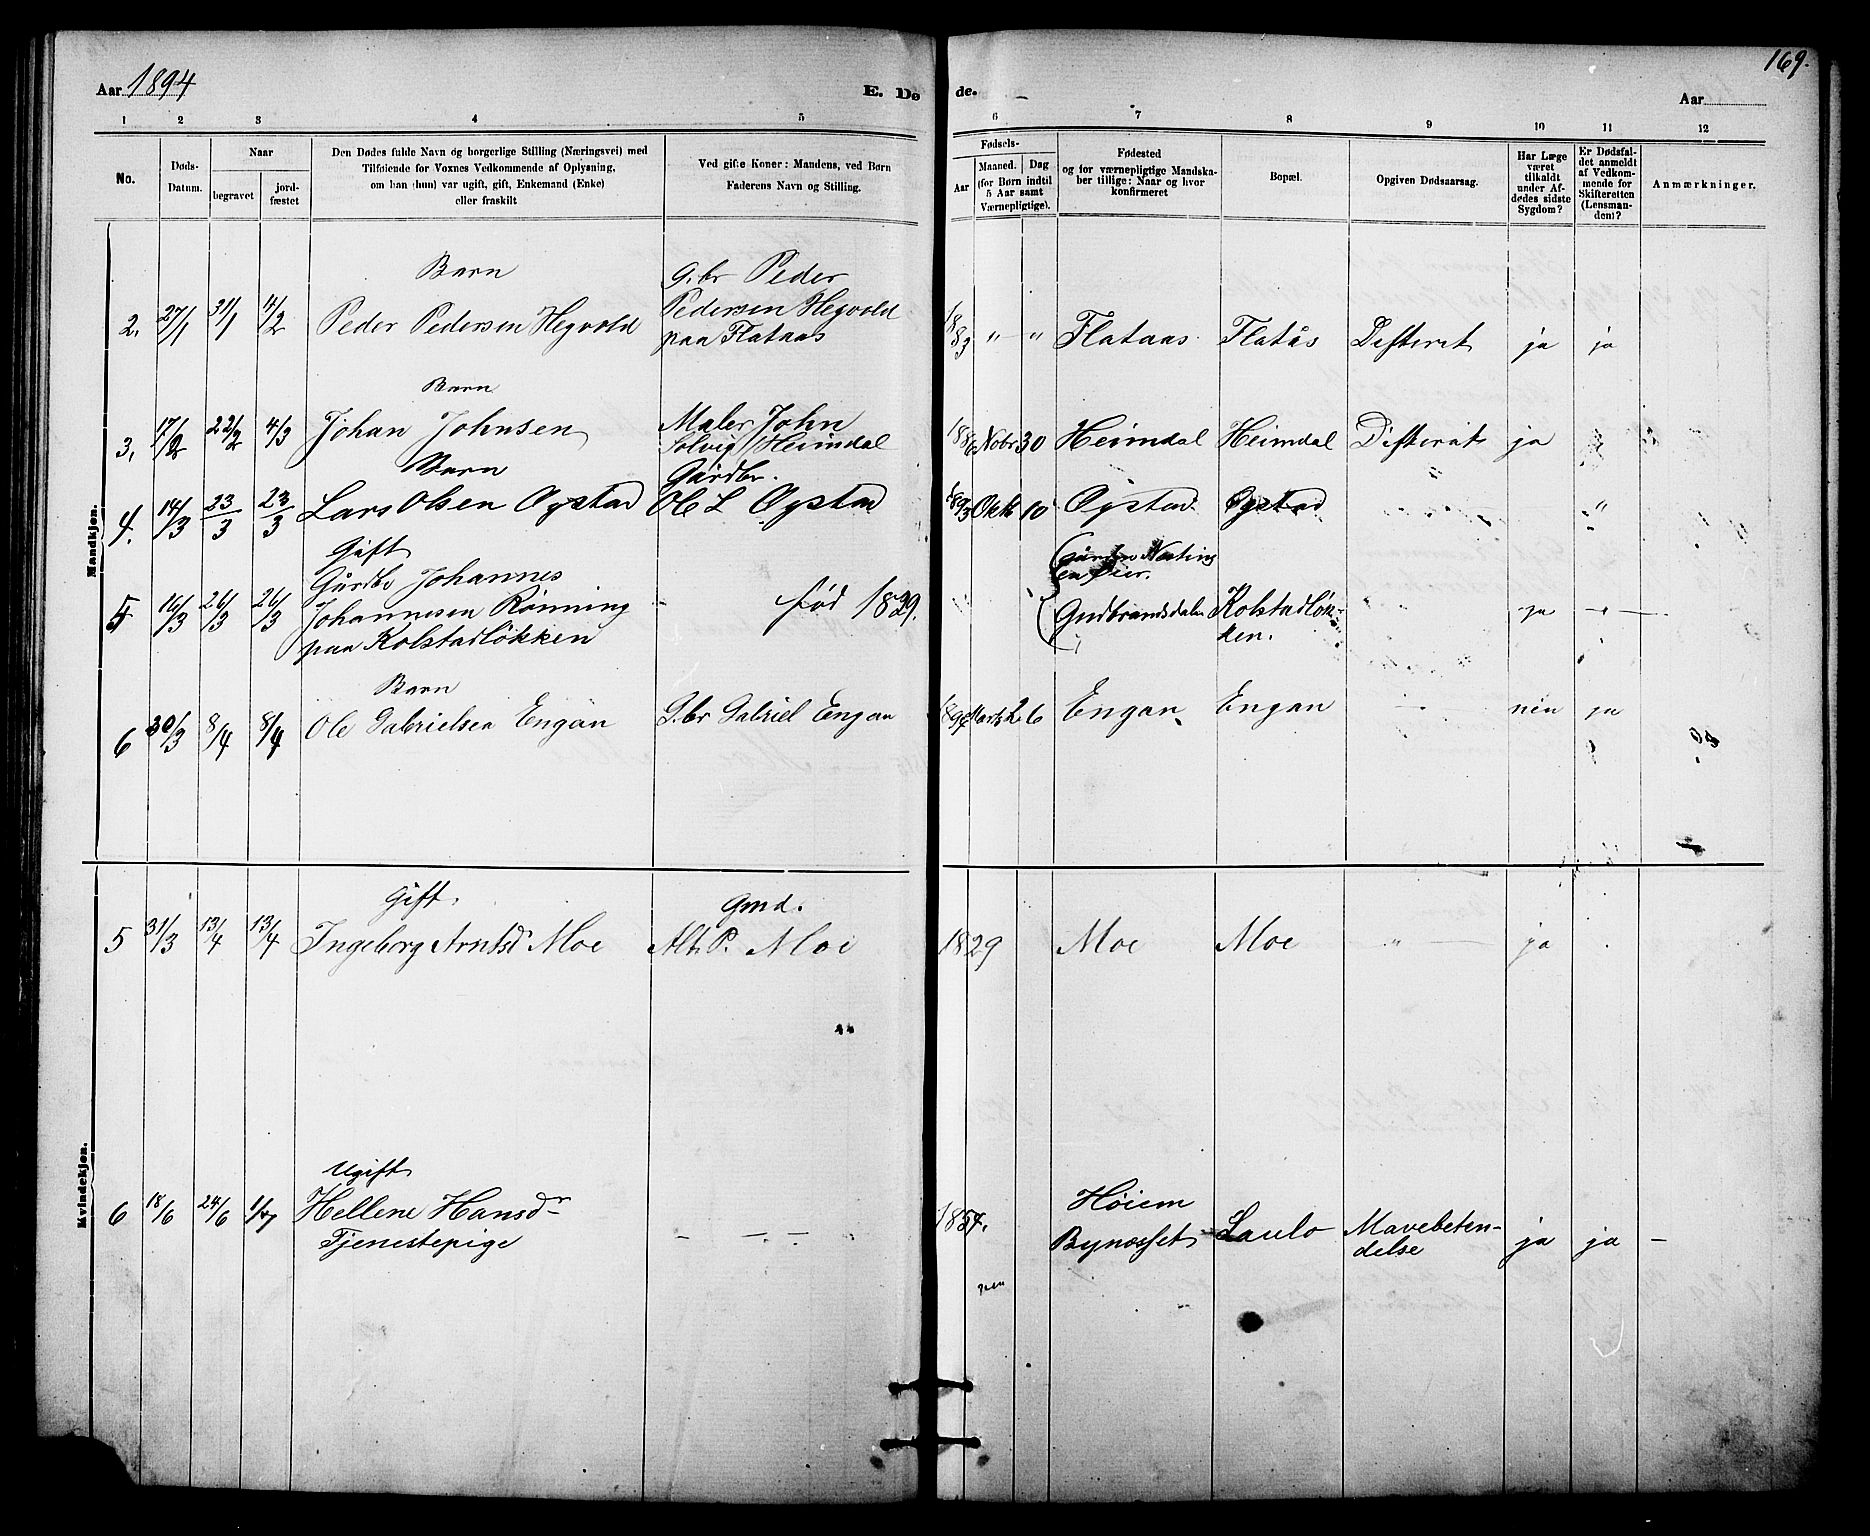 Aar 1894
E. Dø
de.
169.
Aar
1 2 3 4 5 6 7 8 9 10 11 12
No.
Døds-
Datum.
Naar
begravet
jord-
fæstet
Den Dødes fulde Navn og borgerlige Stilling (Næringsvei) med
Tilføiende for Voxnes Vedkommende af Oplysning,
om han (hun) var ugift, gift, Enkemand (Enke)
eller fraskilt
Ved gifte Koner: Mandens, ved Børn
Faderens Navn og Stilling.
Fødsels-
Aar
Maaned.
Dag
(for Børn indtil
5 Aar samt
Værnepligtige).
Fødested
og for værnepligtige Mandska-
ber tillige: Naar og hvor
konfirmeret
Bopæl.
Opgiven Dødsaarsag.
Har Læge
været
tilkaldt
under Af-
dødes sidste
Sygdom?
Er Dødsfal-
det anmeldt
af Vedkom-
mende for
Skifteretten
(Lensman-
den)?
Anmærkninger.
Mandkjøn.
Barn
G.br Peder
2. 27/1 31/1 4/2 Peder Pedersen Hegvold
Pedersen Hegvold
paa Flataas
1883 " — " Flataas Flatås Difterit ja ja
Barn
3, 17/2 22/2 4/3 Johan Johnsen
Maler John
Solvig Heimdal
1886 Nobr 30 Heimdal Heimdal Difterit ja
Barn
Gårdbr.
4. 14/3 23/3 23/3 Lars Olsen Øystad Ole L Øystad
1893 Okt 10 Øystad Øystad "
Gift
Gårdbr Johannes
5 16/3 26/3 26/3 Johannesen Rönning
paa Kolstadlökken
– född 1829.
Gudbrandsdalen Kolstadlök-
ken. ja – " —
Barn
6 30/3 8/4 8/4 Ole Gabrielsen Engan G.br Gabriel Engan
1894 Marts 26 Engan Engan — nei ja
Gift.
Gmd.
5 31/3 13/4 13/4 Ingeborg Arntsd Moe P. Moe
1829 Moe Moe " — ja
Kvindekjøn.
Ugift
6 18/6 24/6 1/7 Hellene Hansdr –
Tjenestepige – — –
1854. Høiem
Bynæsset Laulo Mavebeten-
delse ja ja –